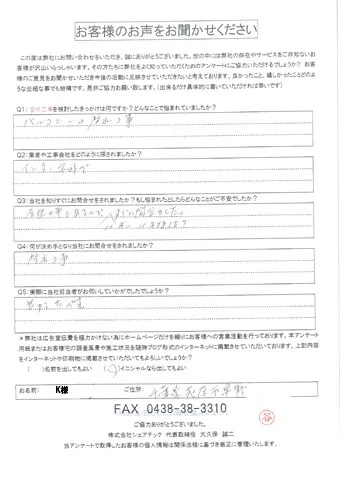 お客様のお声をお聞かせください
この度は弊社にお問い合わせをいただき、誠にありがとうございました。世の中には弊社の存在やサービスをご存知ないお
客様が沢山いらっしゃいます。その方たちに弊社をよく知っていただくためのアンケートにご協力いただけるでしょうか？ お客
様のご意見をお聞かせいただき今後の活動に反映させていただきたいと考えております。良かったこと、嬉しかったことどのよ
うな些細な事でも結構です。是非ご協力お願い致します。（出来るだけ具体的に書いていただければ幸いです）
Q1：を検討したきっかけは何ですか？どんなことで悩まれていましたか？
バルコニーの防水工事
Q2：業者や工事会社をどのように探されましたか？
インターネットで
Q3：当社を知りすぐにお問合せをされましたか？もし悩まれたとしたらどんなことがご不安でしたか？
Q4：何が決め手となり当社にお問合せをされましたか？
防水工事
Q5：実際に当社担当者がお伺いしていかがでしたでしょうか？
＊弊社は広告宣伝費を極力かけない為にホームページだけを頼りにお客様への営業活動を行っております。本アンケート
用紙またはお客様宅の調査風景や施工状況を随時ブログ形式のインターネットに掲載させていただいております。上記内容
をインターネットや印刷物に掲載させていただいてもよろしいでしょうか？
（　）名前を出してもよい　（　）イニシャルなら出してもよい
お名前： K様　ご住所： 千葉県
FAX 0438-38-3310
谷
ご協力ありがとうございました。
株式会社シェアテック 代表取締役 大久保 誠二
当アンケートで取得したお客様の個人情報は関係法規に基づき厳正に管理いたします。